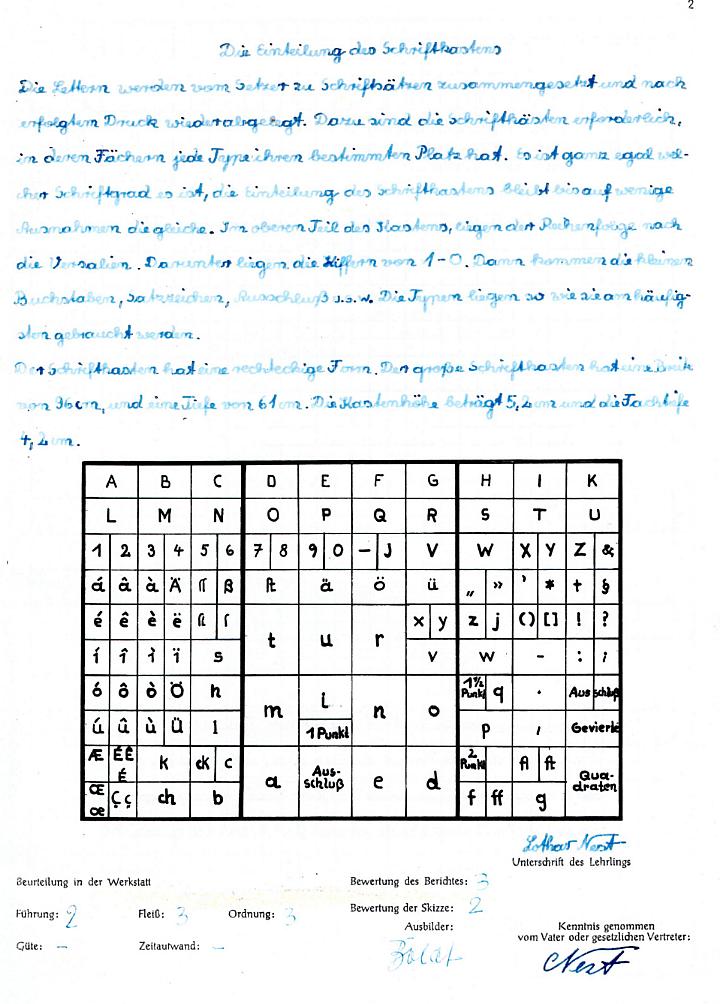 2
Die Einteilung des Schriftkastens
Die Lettern werden vom Setzer zu Schriftsätzen zusammengesetzt und nach
erfolgtem Druck wieder abgelegt. Dazu sind die Schriftkästen erforderlich,
in deren Fächern jede Type ihren bestimmten Platz hat. Es ist ganz egal wel-
cher Schriftgrad es ist, die Einteilung des Schriftkastens bleibt bis auf wenige
Ausnahmen die gleiche. Im oberen Teil des Kastens, liegen der Reihenfolge nach
die Versalien. Darunter liegen die Ziffern von 1-0. Dann kommen die kleinen
Buchstaben, Satzzeichen, Ausschluß u.s.w. Die Typen liegen so wie sie am häufig-
sten gebraucht werden.
Der Schriftkasten hat eine rechteckige Form. Der große Schriftkasten hat eine Breite
von 96 cm, und eine Tiefe von 61 cm. Die Kastenhöhe beträgt 5,2 cm und die Fachtiefe
4,2 cm.
A B C D E F G H I K
L M N O P Q R S T U
1 2 3 4 5 6 7 8 9 0 – J V W X Y Z &
á â à Ä ſſ ß ſt ä ö ü „ » ' * † §
é ê è ë ſi ſ t u r x y z j () [] ! ?
í î ì ï s v w - : ;
ó ô ò Ö h m i n o 1½ Punkt q . Ausschluß
ú û ù Ü l 1 Punkt p , Gevierte
Æ ÉÊ É k ck c a Aus-schluß e d 2 Punkt fl ft Qua-draten
Œ œ Ç ç ch b f ff g
Lothar Nest
Unterschrift des Lehrlings
Beurteilung in der Werkstatt
Bewertung des Berichtes: 3
Führung: 2 Fleiß: 3 Ordnung: 3
Bewertung der Skizze: 2
Ausbilder:
Kenntnis genommen
vom Vater oder gesetzlichen Vertreter:
Güte: – Zeitaufwand: –
Nest